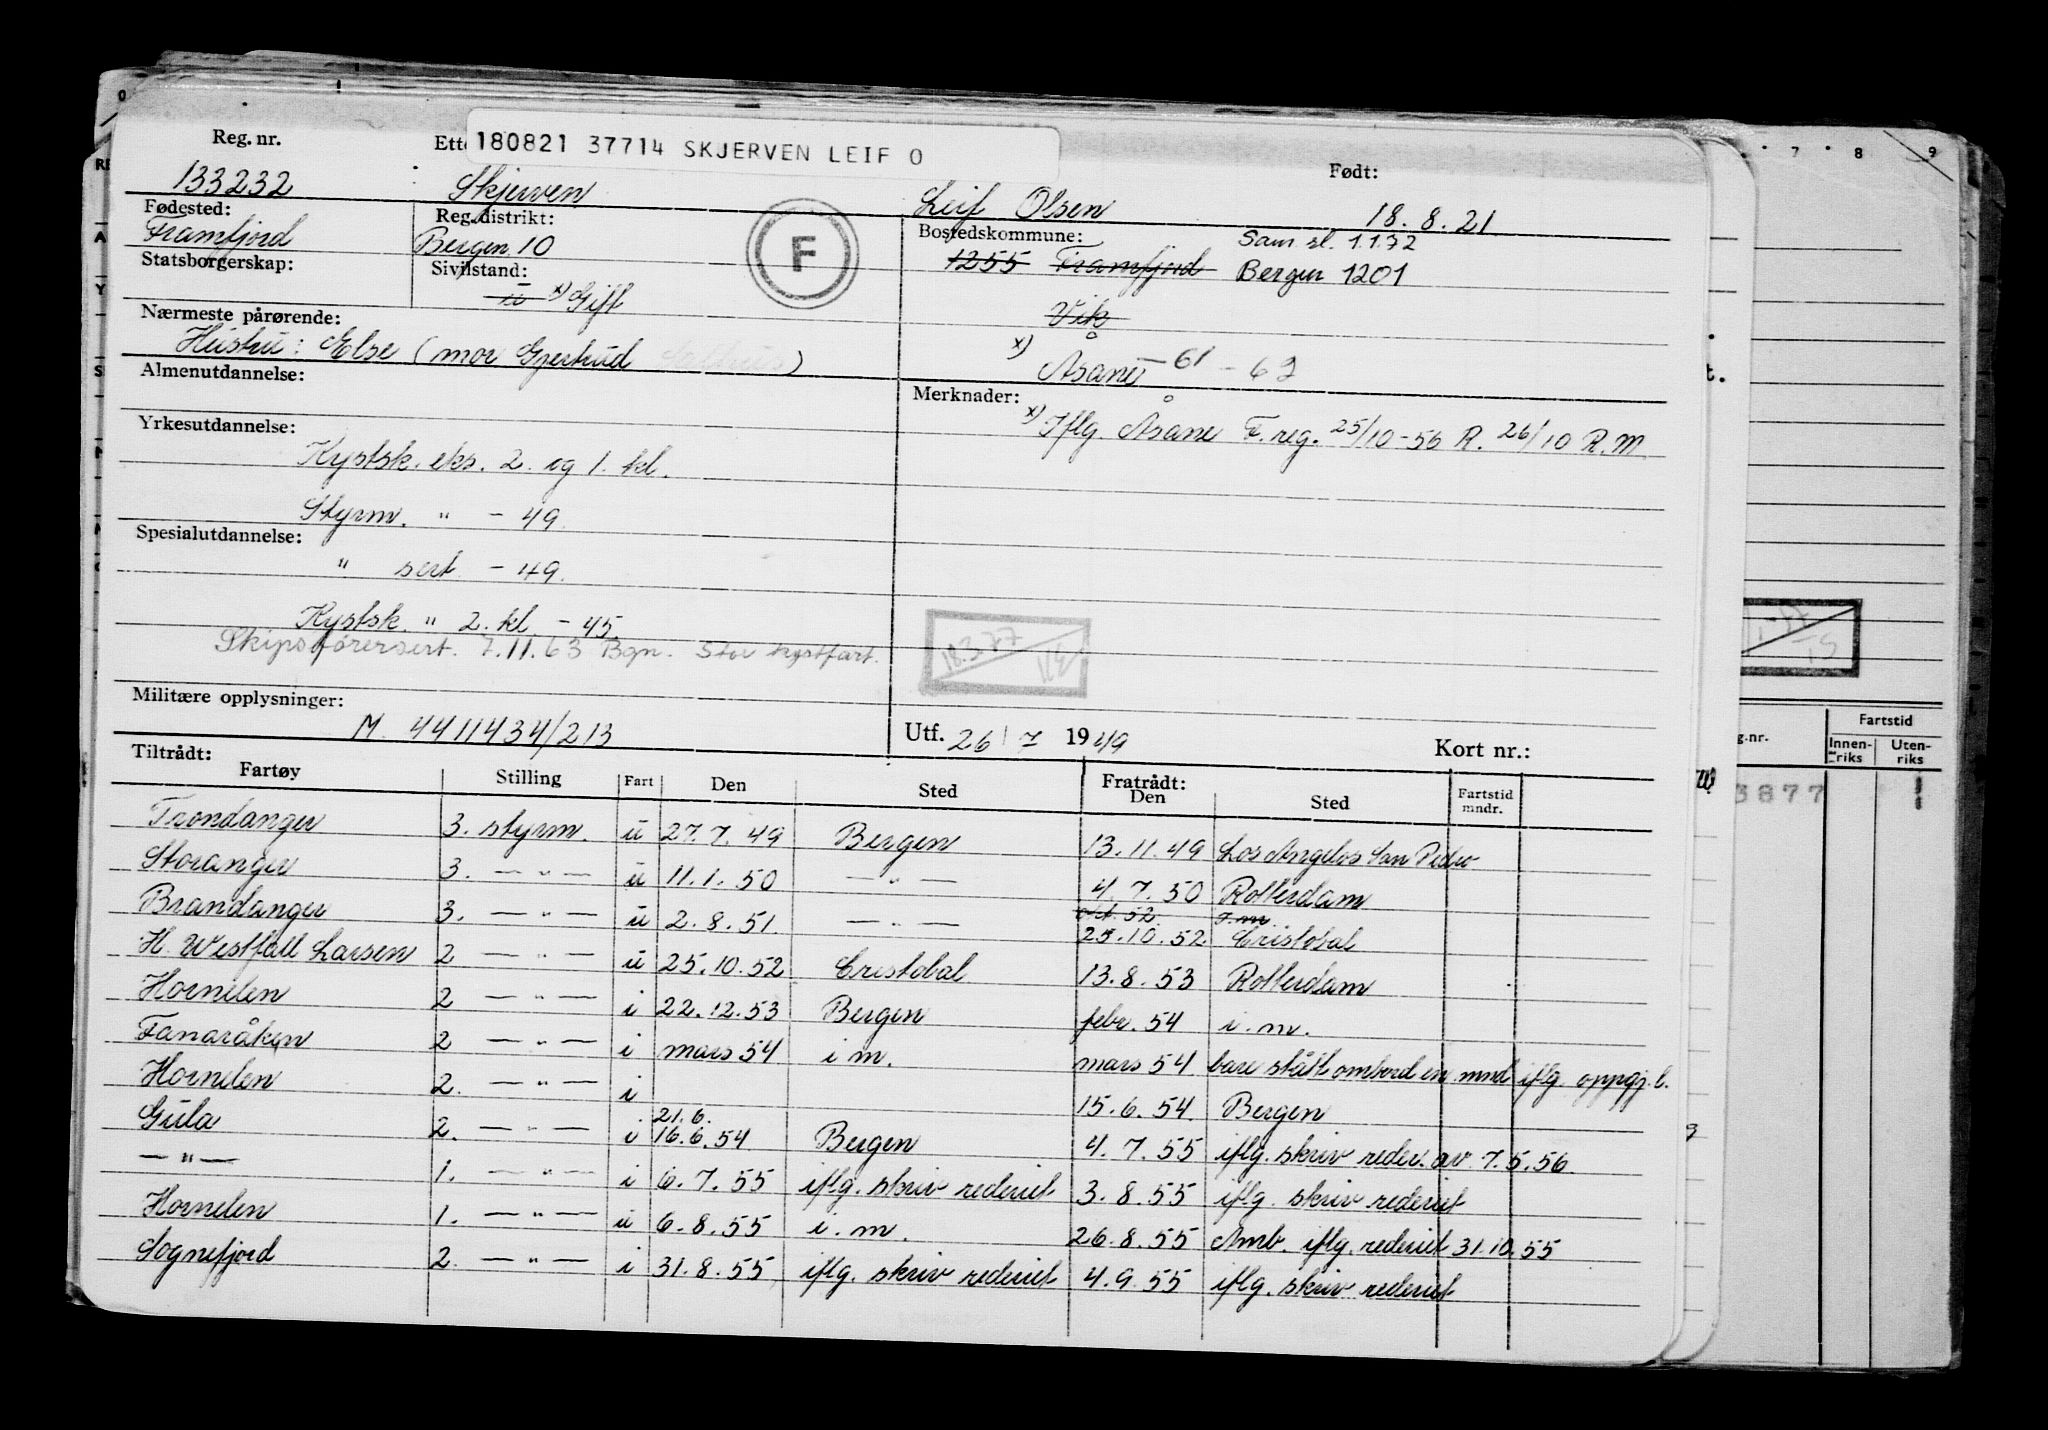 Reg. nr.
180821 37714 SKJERVEN LEIF O
Født:
133232 Skjerven Leif Olsen 18.8.21
Fødested: Reg.distrikt: Bostedskommune:
Framfjord Bergen 10 1255 Framfjord Sam sl. 1.1.72
Bergen 1201
Statsborgerskap: Sivilstand:
u x) Gift Vik
Nærmeste pårørende:
Hustru: Else (mor Gjertrud ) x) Åsane -61 - 62
Almenutdannelse: Merknader:
x) Iflg. Åsane F.reg. 25/10-56 R. 26/10 R.M.
Yrkesutdannelse:
Kystsk. eks. 2. og 1. kl.
Styrm. " - 49.
Spesialutdannelse:
" sert - 49.
Kystsk. " 2. kl. - 45.
Skipsførersert. 7.11.63 Bgn. Stor kystfart.
18.3.77
Militære opplysninger:
M. 4411434/213 Utf. 26/7 1949 Kort nr.:
Tiltrådt: Fratrådt:
Fartøy Stilling Fart Den Sted Den Sted Fartstid mndr.
Trondanger 3. styrm. u 27.7.49 Bergen 13.11.49 Los Angelos San Pedro
Storanger 3. — " — u 11.1.50 — " — 4.7.50 Rotterdam
Brandanger 3. — " — u 2.8.51 — " — okt. 52 i.m.
25.10.52 Cristobal
H. Westfall Larsen 2 — " — u 25.10.52 Cristobal 13.8.53 Rotterdam
Hornelen 2 — " — i 22.12.53 Bergen febr. 54 i.m.
Fanaråken 2 — " — i mars 54 i m. mars 54 bare stått ombord en mnd iflg. oppgj.l.
Hornelen 2. — " — i 15.6.54 Bergen
Gula 2. — " — i 21.6. 16.6.54 Bergen 4.7.55 iflg. skriv reder. av 7.5.56
— " — 1. — " — i 6.7.55 iflg. skriv rederiet 3.8.55 iflg. skriv rederiet
Hornelen 1. — " — u 6.8.55 i.m. 26.8.55 Amb. iflg. rederiet 31.10.55
Sognefjord 2. — " — i 31.8.55 iflg. skriv rederiet 4.9.55 iflg. skriv rederiet
F
7 8 9
Fartstid
g.nr. Innen- Uten-
riks riks
3877